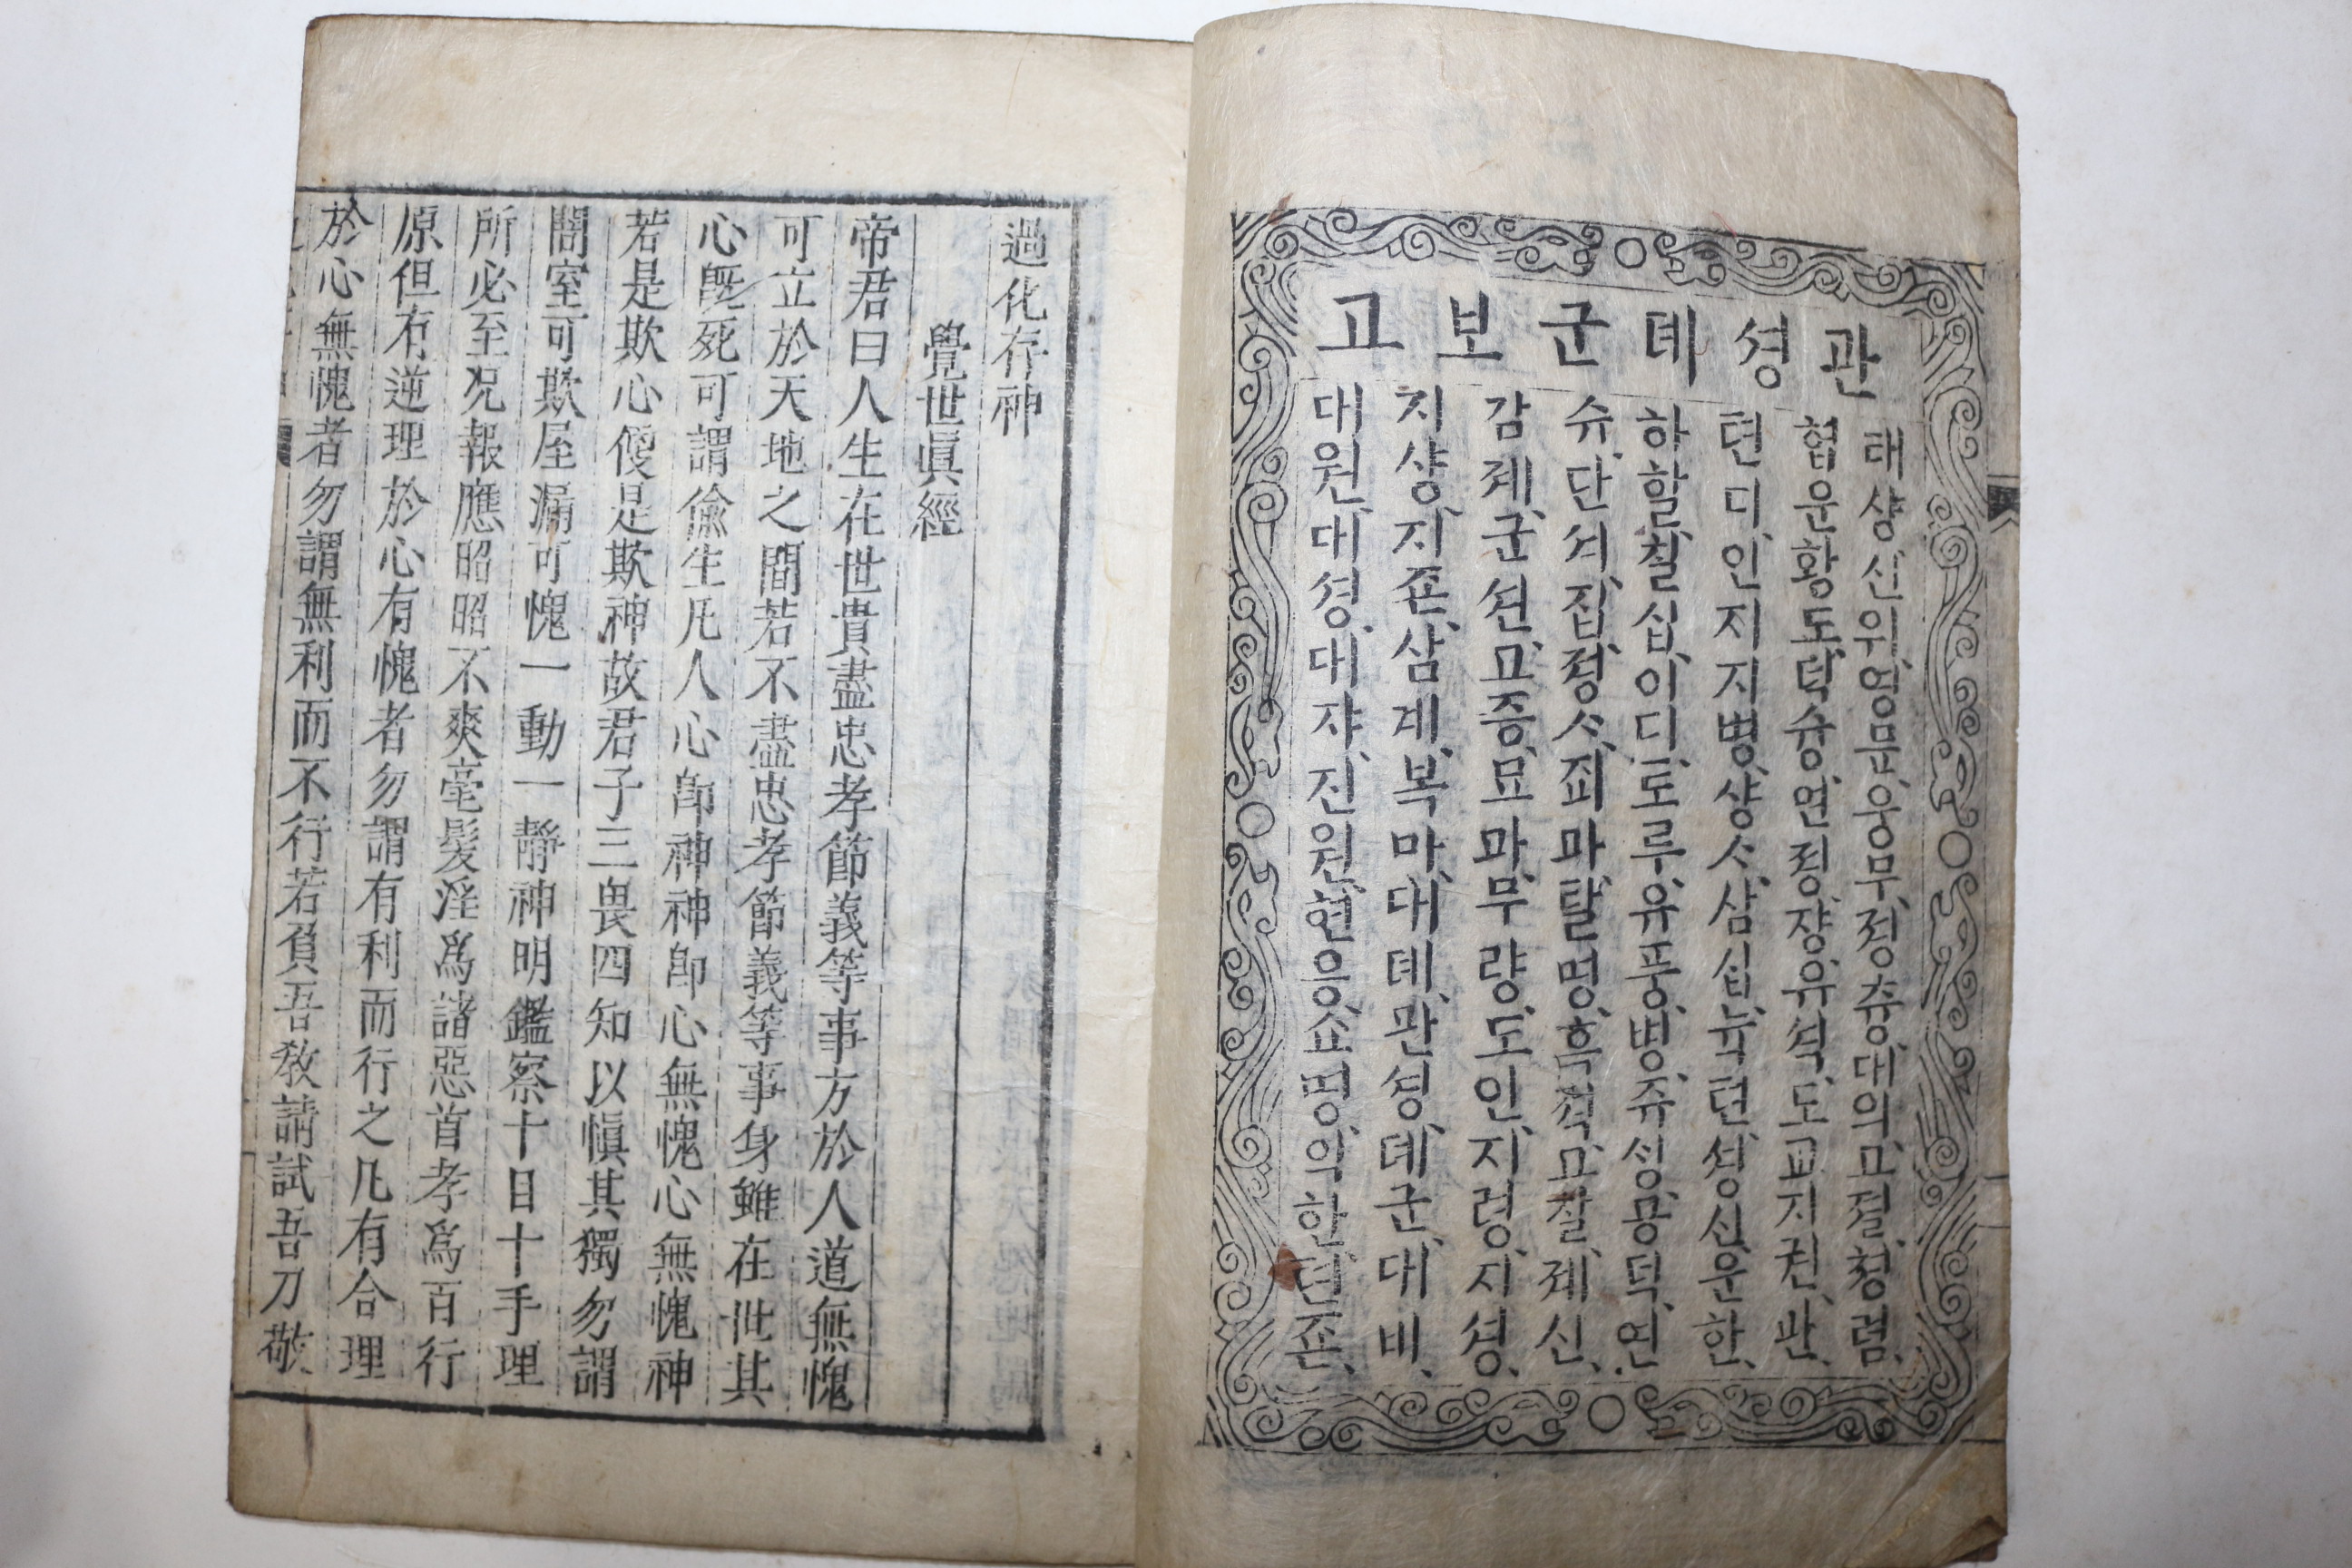 관셩뎨군보고
태샹신위영문웅무졍츙대의고졀쳥렴
협운황도덕슝연졍쟝유셕도교지권관
텬디인지지병샹ᄉ삼십뉵텬셩신운한
하할칠십이디도루유풍병쥬싱공덕연
슈단셔집졍ᄉ죄마탈명흑젹고찰졔신
감졔군션고증묘마무량도인지령지셩
치샹지존삼계복마대뎨관셩뎨군대비
대원대셩대쟈진원현응쇼명익한텬존
過化存神
覺世眞經
帝君曰人生在世貴盡忠孝節義等事方於人道無愧
可立於天地之間若不盡忠孝節義等事身雖在世其
心旣死可謂偸生凡人心卽神神卽心無愧心無愧神
若是欺心便是欺神故君子三畏四知以愼其獨勿謂
闇室可欺屋漏可愧一動一靜神明鑑察十目十手理
所必至况報應昭昭不爽毫髮淫爲諸惡首孝爲百行
原但有逆理於心有愧者勿謂有利而行之凡有合理
於心無愧者勿謂無利而不行若負吾敎請試吾刀敬